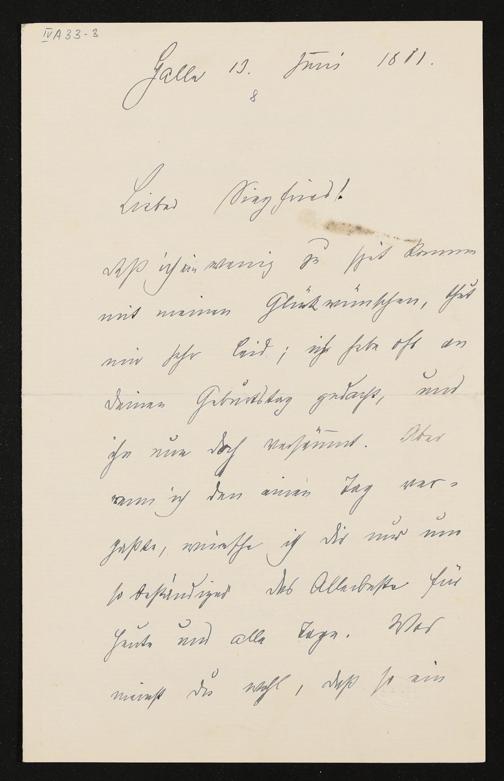 IV A 33-3
Halle 13. Juni 1881.
8
Lieber Siegfried!
Daß ich ein wenig zu spät komme
mit meinen Glückwünschen, thut
mir sehr leid; ich habe oft an
Deinen Geburtstag gedacht, und
ihn nun doch versäumt. Aber
wenn ich den einen Tag ver-
gaßte, wünsche ich Dir nur um
so beständiger das Allerbeste für
heute und alle Tage. Was
meinst Du wohl, daß so ein